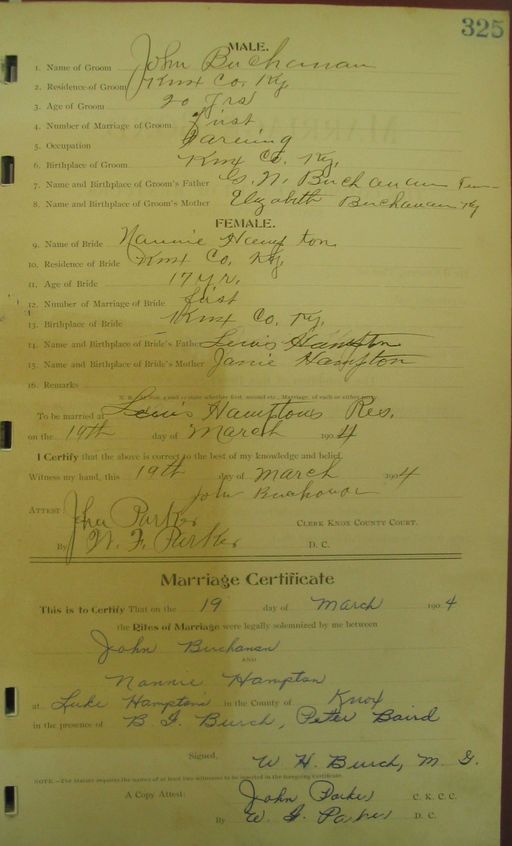 325
MALE.
1. Name of Groom John Buchanan
2. Residence of Groom Knox Co. Ky.
3. Age of Groom 20 Yrs
4. Number of Marriage of Groom First
5. Occupation Farming
6. Birthplace of Groom Knox Co. Ky.
7. Name and Birthplace of Groom's Father G. N. Buchanan Tenn
8. Name and Birthplace of Groom's Mother Elizabeth Buchanan Ky
FEMALE.
9. Name of Bride Nannie Hampton
10. Residence of Bride Knox Co. Ky.
11. Age of Bride 17 yr.
12. Number of Marriage of Bride first
13. Birthplace of Bride Knox Co. Ky.
14. Name and Birthplace of Bride's Father Lewis Hampton
15. Name and Birthplace of Bride's Mother Janie Hampton
16. Remarks
To be married at Lewis Hamptons Res.
on the 19th day of March 1904
I Certify that the above is correct to the best of my knowledge and belief.
Witness my hand, this 19th day of March 1904
John Buchanan
ATTEST: John Parker CLERK KNOX COUNTY COURT.
By W. F. Parker D. C.
Marriage Certificate
This is to Certify That on the 19 day of March 1904
the Rites of Marriage were legally solemnized by me between
John Buchanan
AND
Nannie Hampton
at Luke Hampton's in the County of Knox
in the presence of B. F. Burch, Peter Baird
Signed, W. H. Burch, M. G.
NOTE.—The statute requires the names of at least two witnesses to be inserted in the foregoing Certificate.
A Copy Attest: John Parker C. K. C. C.
By W. F. Parker D. C.